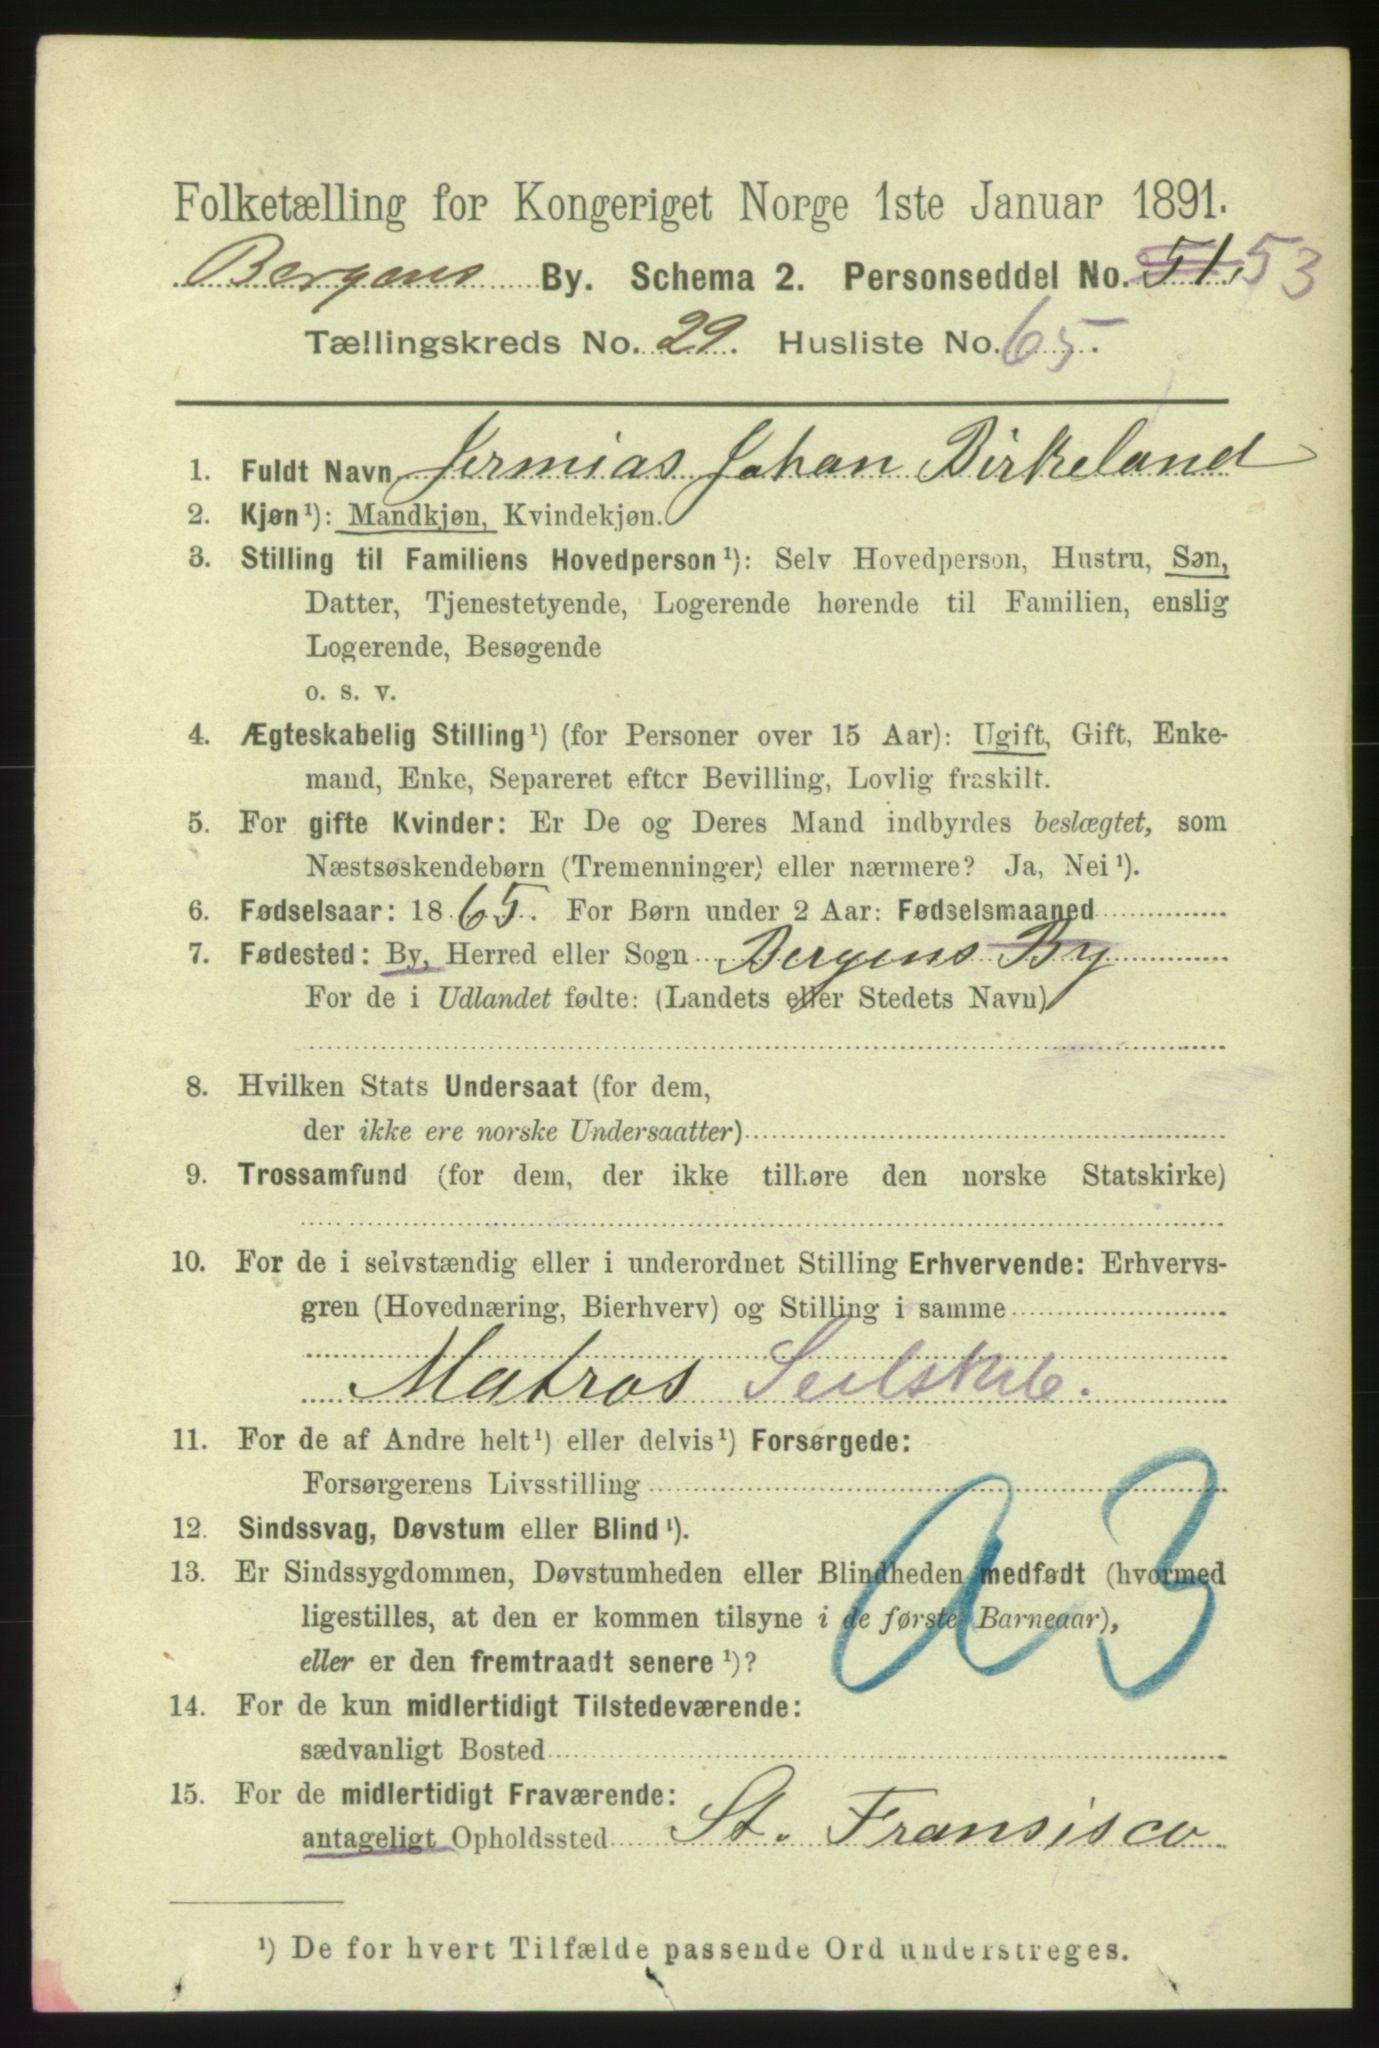 Folketælling for Kongeriget Norge 1ste Januar 1891.
Bergens By. Schema 2. Personseddel No. 51. 53
Tællingskreds No. 29. Husliste No. 65.
1. Fuldt Navn Jermias Johan Birkeland
2. Kjøn¹): Mandkjøn, Kvindekjøn.
3. Stilling til Familiens Hovedperson¹): Selv Hovedperson, Hustru, Søn,
Datter, Tjenestetyende, Logerende hørende til Familien, enslig
Logerende, Besøgende
o. s. v.
4. Ægteskabelig Stilling¹) (for Personer over 15 Aar): Ugift, Gift, Enke-
mand, Enke, Separeret efter Bevilling, Lovlig fraskilt.
5. For gifte Kvinder: Er De og Deres Mand indbyrdes beslægtet, som
Næstsøskendebørn (Tremenninger) eller nærmere? Ja, Nei¹).
6. Fødselsaar: 1865. For Børn under 2 Aar: Fødselsmaaned
7. Fødested: By, Herred eller Sogn Bergens By
For de i Udlandet fødte: (Landets eller Stedets Navn)
8. Hvilken Stats Undersaat (for dem,
der ikke ere norske Undersaatter)
9. Trossamfund (for dem, der ikke tilhøre den norske Statskirke)
10. For de i selvstændig eller i underordnet Stilling Erhvervende: Erhvervs-
gren (Hovednæring, Bierhverv) og Stilling i samme
Matros Seilskib.
11. For de af Andre helt¹) eller delvis¹) Forsørgede:
Forsørgerens Livsstilling
12. Sindssvag, Døvstum eller Blind¹).
13. Er Sindssygdommen, Døvstumheden eller Blindheden medfødt (hvormed
ligestilles, at den er kommen tilsyne i de første Barneaar),
eller er den fremtraadt senere¹)?
a 3
14. For de kun midlertidigt Tilstedeværende:
sædvanligt Bosted
15. For de midlertidigt Fraværende:
antageligt Opholdssted St. Fransisco
¹) De for hvert Tilfælde passende Ord understreges.